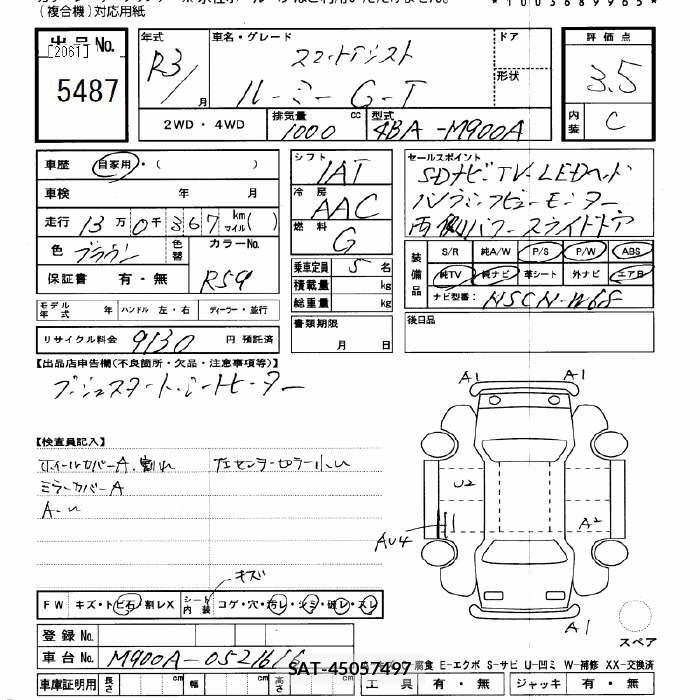 (複合機)対応用紙
*1003689965*
出品No.
[2061]
5487
年式 R3/ 月
車名・グレード スマートアシスト
ルーミー G-T
ドア
形状
評価点
3.5
内装 C
2WD・4WD
排気量 1000 cc
型式 4BA-M900A
車歴 自家用・( )
車検 年 月
走行 13万0千367 km マイル( )
色 ブラウン 色替 カラーNo. R59
保証書 有・無
モデル年式 年 ハンドル 左・右 ディーラー・並行
リサイクル料金 9130 円 預託済
シフト IAT
冷房 AAC
燃料 G
乗車定員 5 名
積載量 kg
総重量 kg
書類期限
月 日
セールスポイント
SDナビTV・LEDヘッド
パノラミックビューモニター
両側パワースライドドア
装備品
S/R 純A/W P/S P/W ABS
純TV 純ナビ 革シート 外ナビ エアB
ナビ型番: NSCN-W68
後日品
【出品店申告欄(不良箇所・欠品・注意事項等)】
プッシュスタート・シートヒーター
【検査員記入】
ホイールカバーA、割れ
ミラーカバーA
A1
A1
U2
AU4
A2
A1
スペア
キズ
FW キズ・トビ石・割レX シート内装 コゲ・穴・汚レ・シミ・破レ・スレ
登録No.
車台No. M900A-0521616
SAT-45057497
腐食 E-エクボ S-サビ U-凹ミ W-補修 XX-交換済
車庫証明用 長さ cm 幅 cm 高さ cm
工具 有・無 ジャッキ 有・無